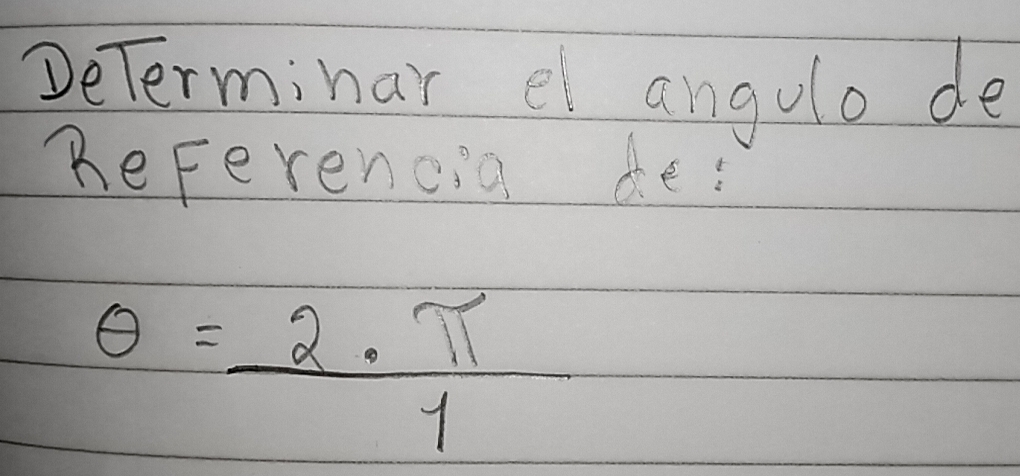 DeTerminar el angulo de
ReFerencia de:
θ = 2 . π
1